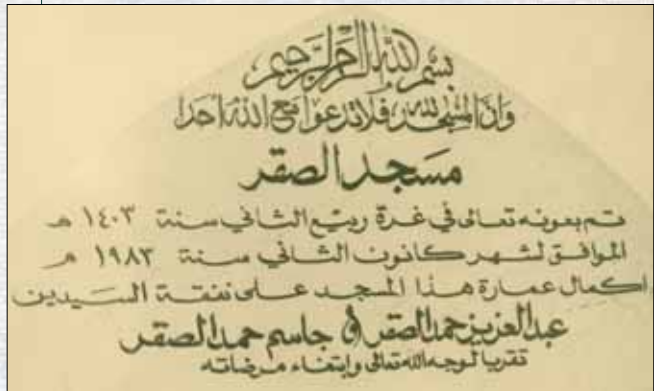 بسم الله الرحمن الرحيم
وان المسجد لله فلا تدعوا مع الله احدا
مسجد الصقر
تم بعونه تعالى في غرة ربيع الثاني سنة ١٤٠٣ هـ
الموافق لشهر كانون الثاني سنة ١٩٨٣ م
اكمال عمارة هذا المسجد على نفقة السيدين
عبدالعزيز حمد الصقر و جاسم حمد الصقر
تقربا لوجه الله تعالى وابتغاء مرضاته